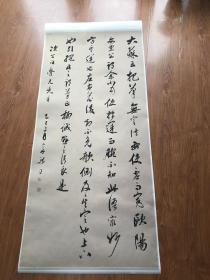 大蘇云把筆無定法要使虛而寬歐陽
文忠公謂余當使指運而腕不知此語最妙
方其運也左右前後却不免欹側及其定也上下
如引繩此之謂筆正柳誠懸之語良是